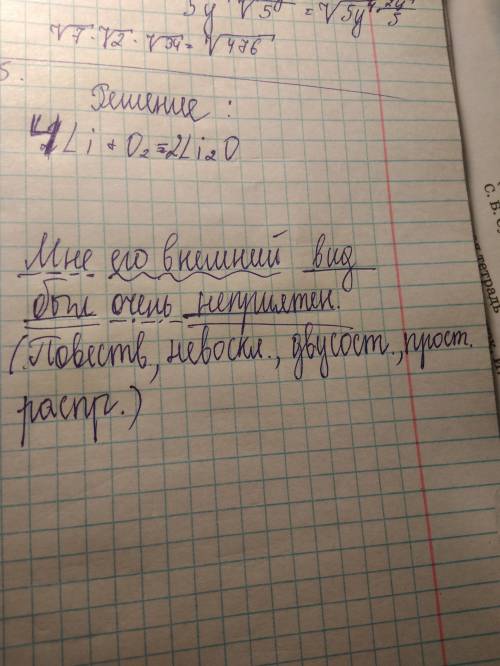 √7 · √2 · √34 = √476
5.
Решение :
4Li + O₂ = 2Li₂O
Мне его внешний вид
был очень неприятен.
(Повеств, невоскл., двусост., прост.
распр.)